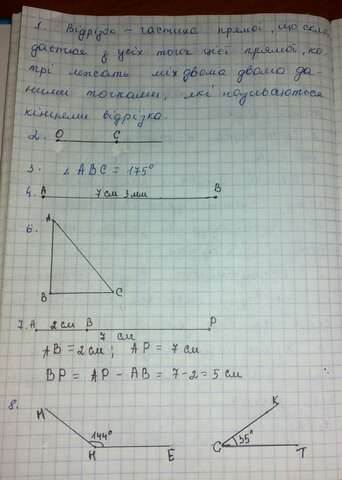 1. Відрізок – частина прямої, що скла
дається з усіх точок цієї прямої, ко
трі лежать між двома двома да
ними точками, які називаються
кінцями відрізка.
2. O C
3. ∠ABC = 175°
4. A 7 см 3 мм B
6. A
B C
7. A 2 см B P
7 см
AB = 2 см; AP = 7 см
BP = AP – AB = 7-2 = 5 см
8. M K
144° 35°
H E C T